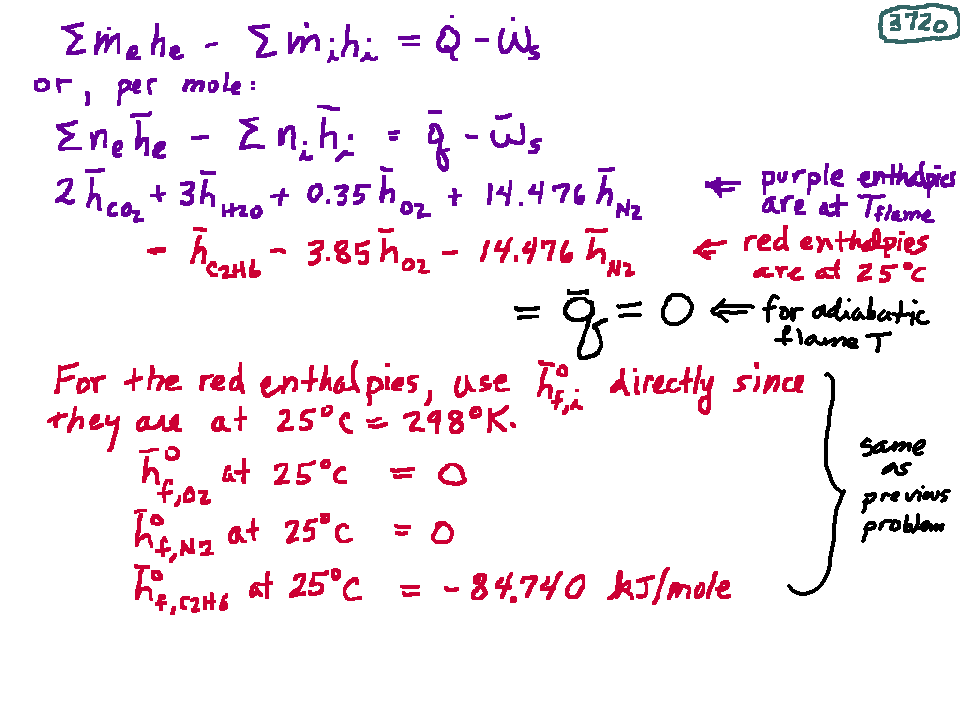 372o
Σṁₑhₑ - Σṁᵢhᵢ = Q̇ - Ẇₛ
or, per mole:
Σnₑh̄ₑ - Σnᵢh̄ᵢ = q̄ - w̄ₛ
2h̄CO₂ + 3h̄H2O + 0.35h̄O₂ + 14.476h̄N2 ⇐ purple enthalpies
are at Tflame
- h̄C2H6 - 3.85h̄O₂ - 14.476h̄N2 ⇐ red enthalpies
are at 25°C
= q̄ = 0 ⇐ for adiabatic
flame T
For the red enthalpies, use h̄°f,i directly since
they are at 25°C = 298°K.
h̄°f,O2 at 25°C = 0
h̄°f,N2 at 25°C = 0
h̄°f,C2H6 at 25°C = -84.740 kJ/mole
same
as
previous
problem